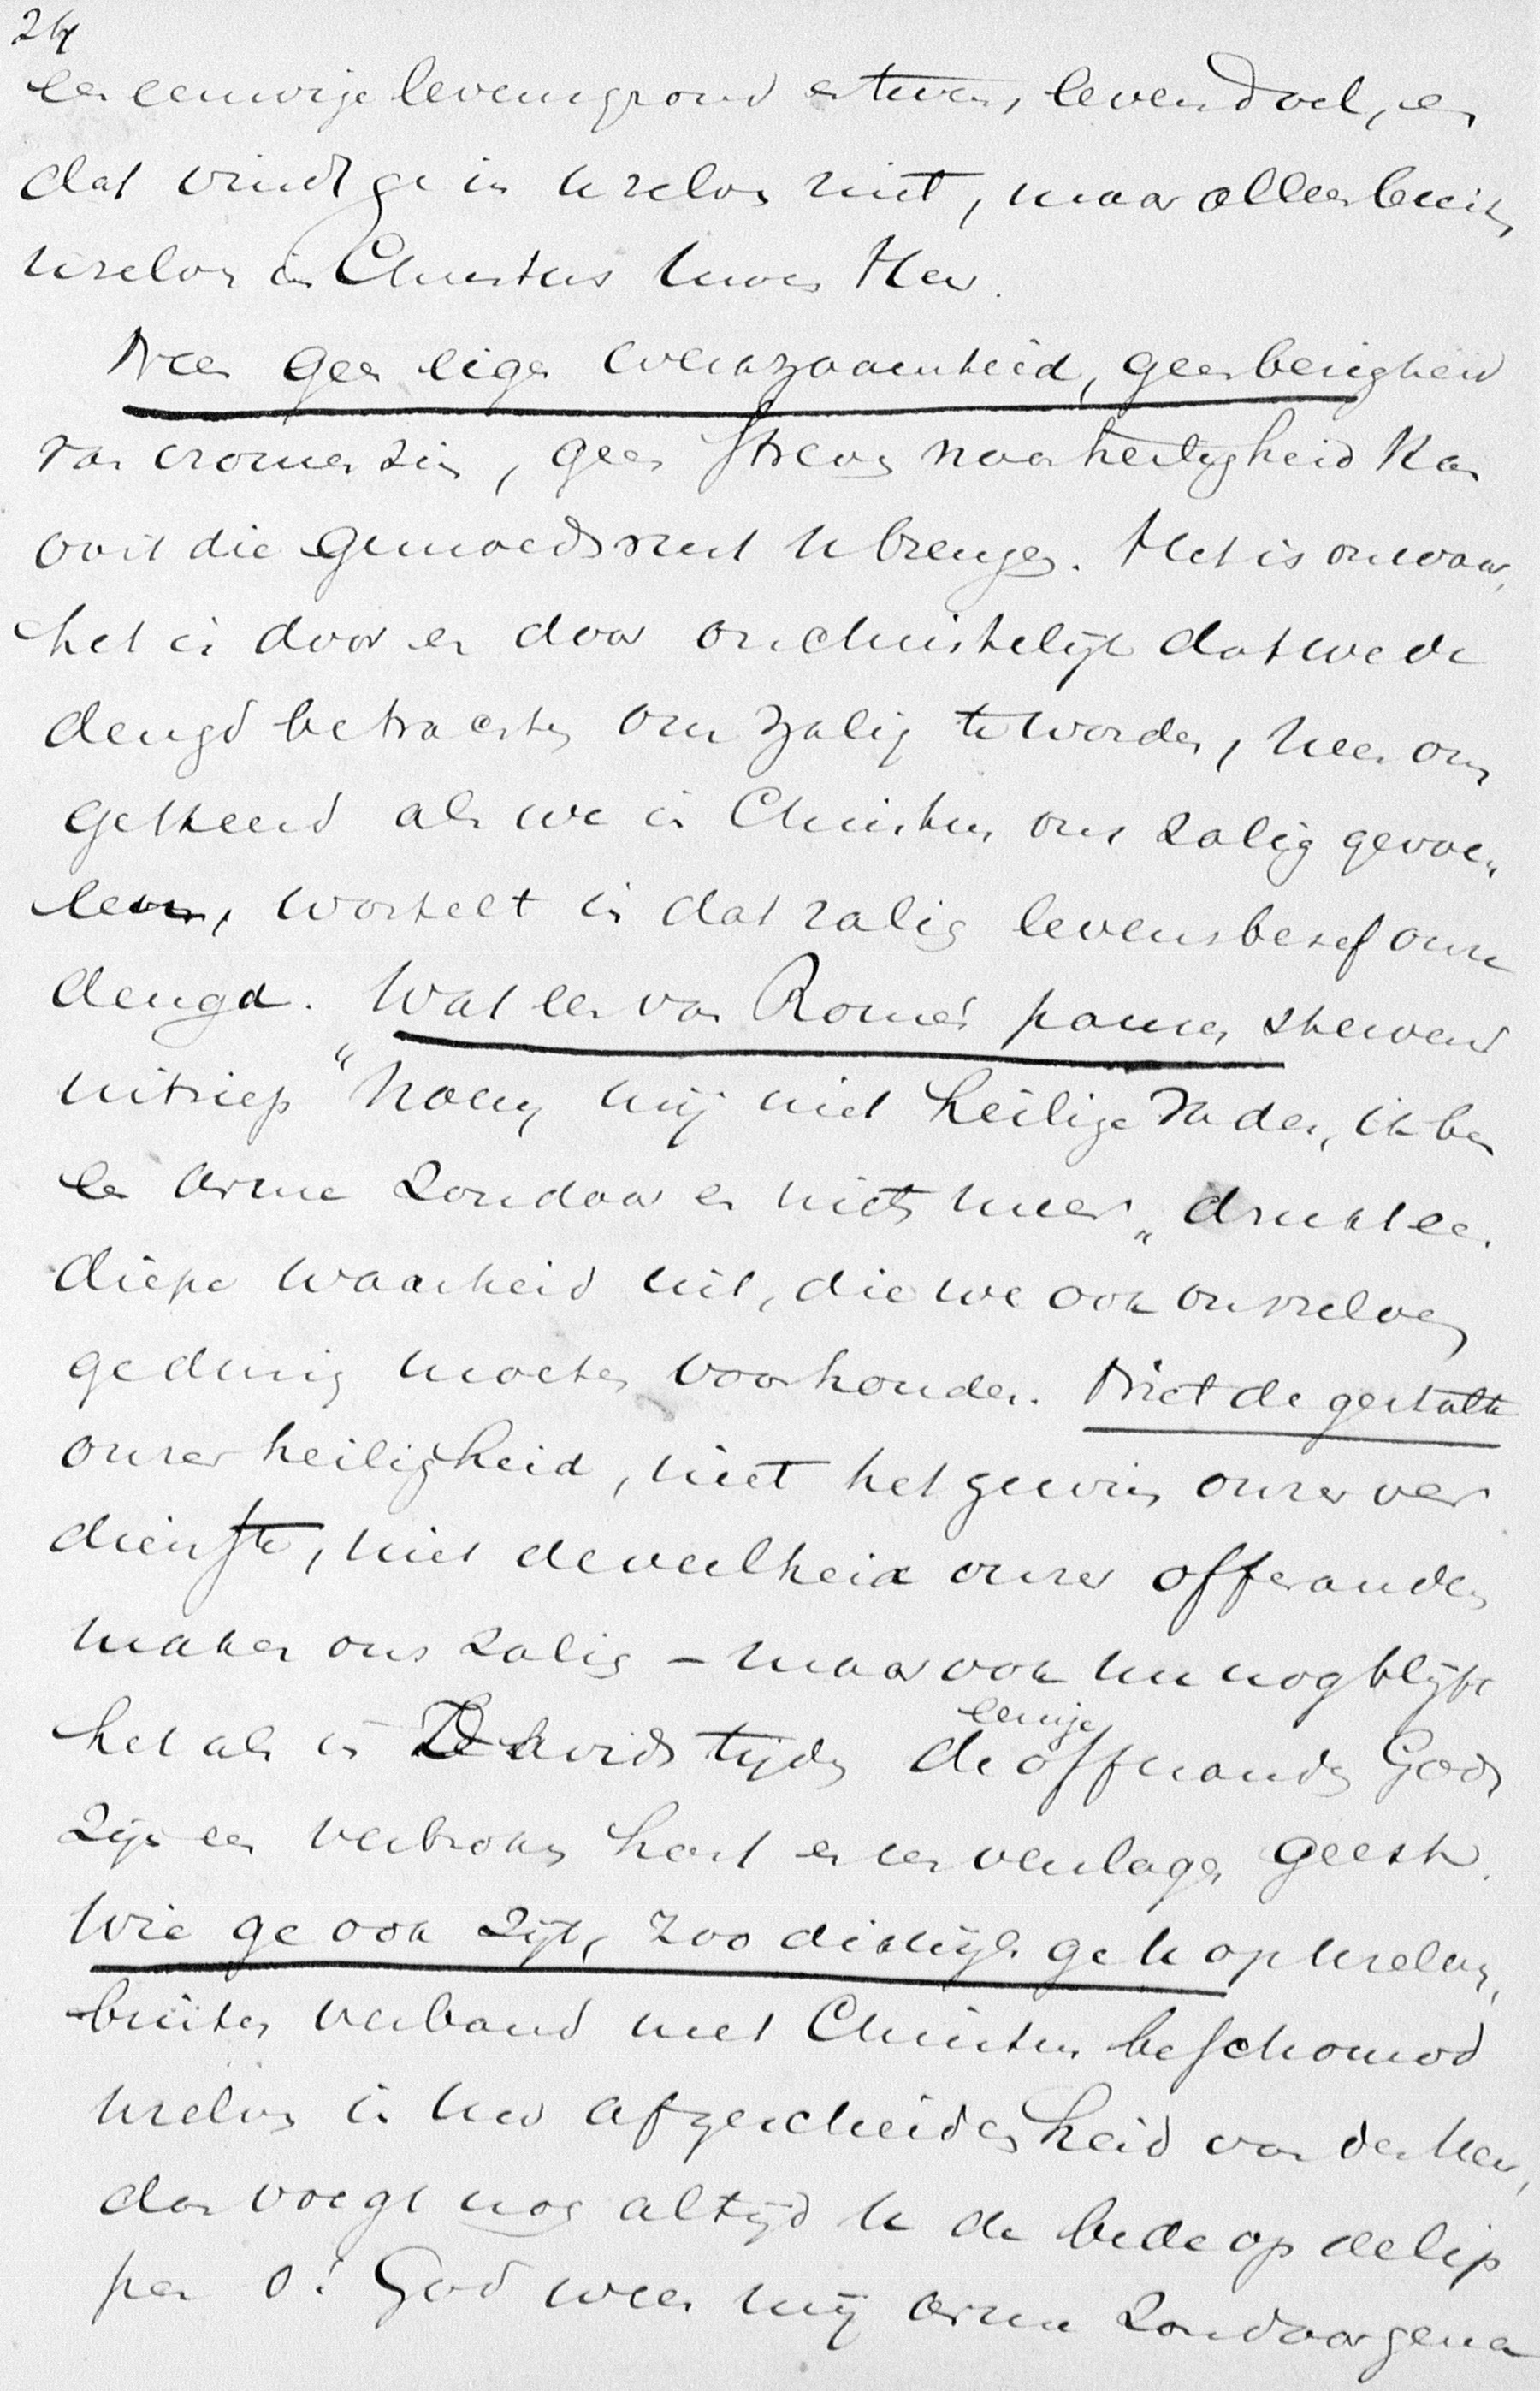 24
een eeuwige levensgrond en tevens levensdoel, en
dat vindt ge in uzelven niet, maar alleen buiten
uzelven in Christus uwen Heer.
Neen geen eigen werkzaamheid, geen bezigheid
van vromen zin, geen streven naar heiligheid kan
ooit die gemoedsrust u brengen. Het is onwaar,
het is door en door onchristelijk dat we de
deugd betrachten om zalig te worden, neen om
gekeerd als we in Christus ons zalig gevoe„
len, wortelt in dat zalig levensbesef onze
deugd. Wat een van Rome's pausen stervend
uitriep "Noem mij niet heilige Vader, ik ben
een arme zondaar en niets meer„ drukt een
diepe waarheid uit, die we ook onszelven
gedurig moeten voorhouden. Niet de gestalte
onzer heiligheid, niet het gewin onzer ver
diensten, niet de veelheid onzer offeranden
maken ons zalig – maar ook nu nog blijft
het als in Davids tijden de eenige offeranden Gods
zijn een verbroken hart en een verslagen geest.
Wie ge ook zijt, zoo dikwijls ge u op uzelven,
buiten verband met Christus beschouwd
uzelven in uw afgescheidenheid van den Heer,
dan voegt nog altijd u de bede op de lip
pen o! God wees mij armen zondaar gena